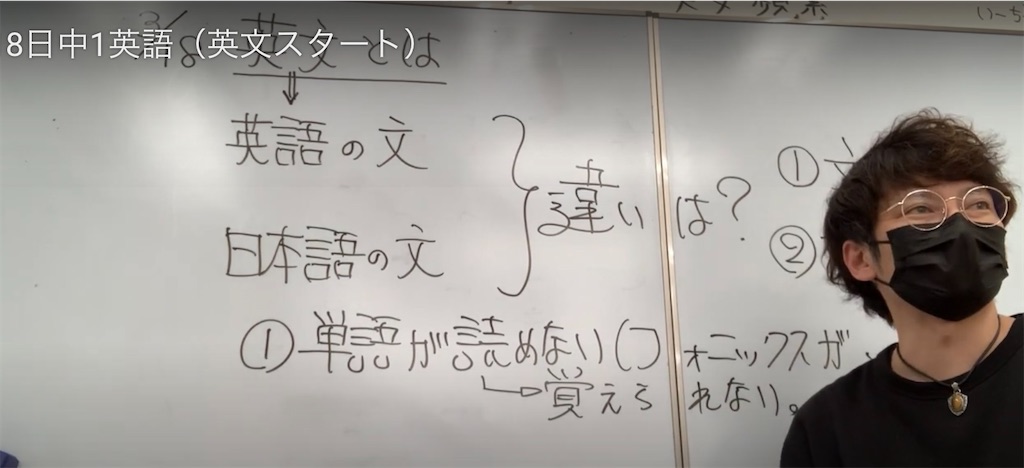 8日中1英語（英文スタート）
3/18 英文とは
英語の文
違いは？
日本語の文
①
②
①単語が読めない(フォニックスが
覚えられない。